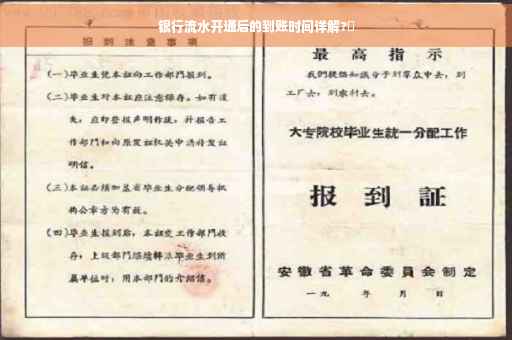 银行流水开通后的到账时间详解?
报到注意事项
(一)毕业生凭本证向工作部门报到。
(二)毕业生对本证应注意保存。如有遗
失，应即登报声明作废，并报告工
作部门和向原发证机关申请补发证
明信。
(三)本证必须加盖省毕业生分配领导机
构公章方为有效。
(四)毕业生报到后，本证交工作部门收
存；上级部门继续转派毕业生到所
属单位时，用本部门的介绍信。
最高指示
我们提倡知识分子到群众中去，到
工厂去，到农村去。
大专院校毕业生統一分配工作
报到証
安徽省革命委員会制定
一九 年 月 日